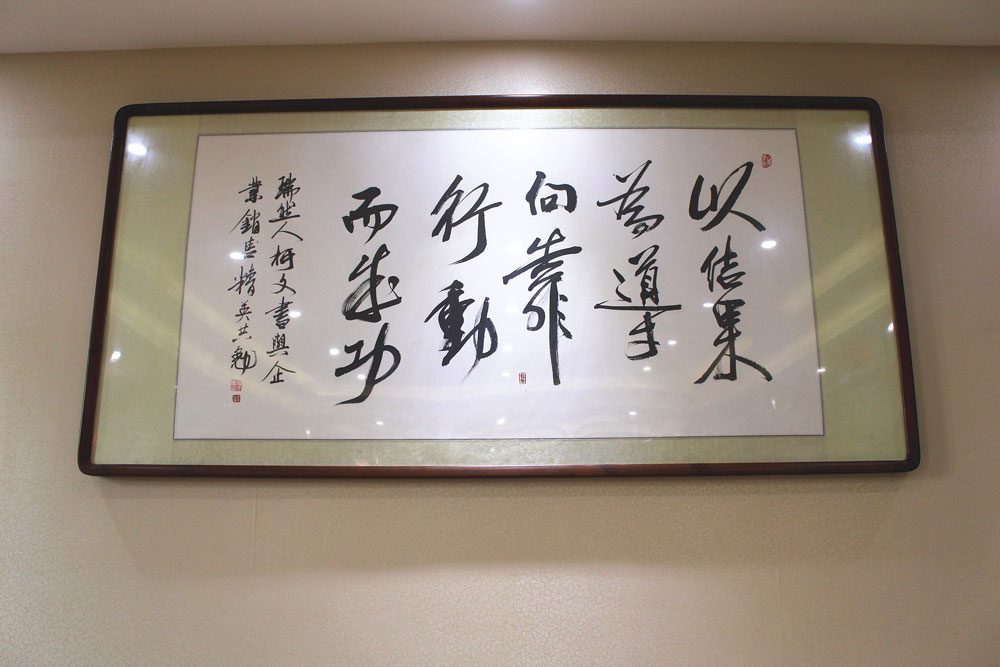 以结果
為導
向靠
行動
而成功
瑞然人柯文書與企
業銷售精英共勉